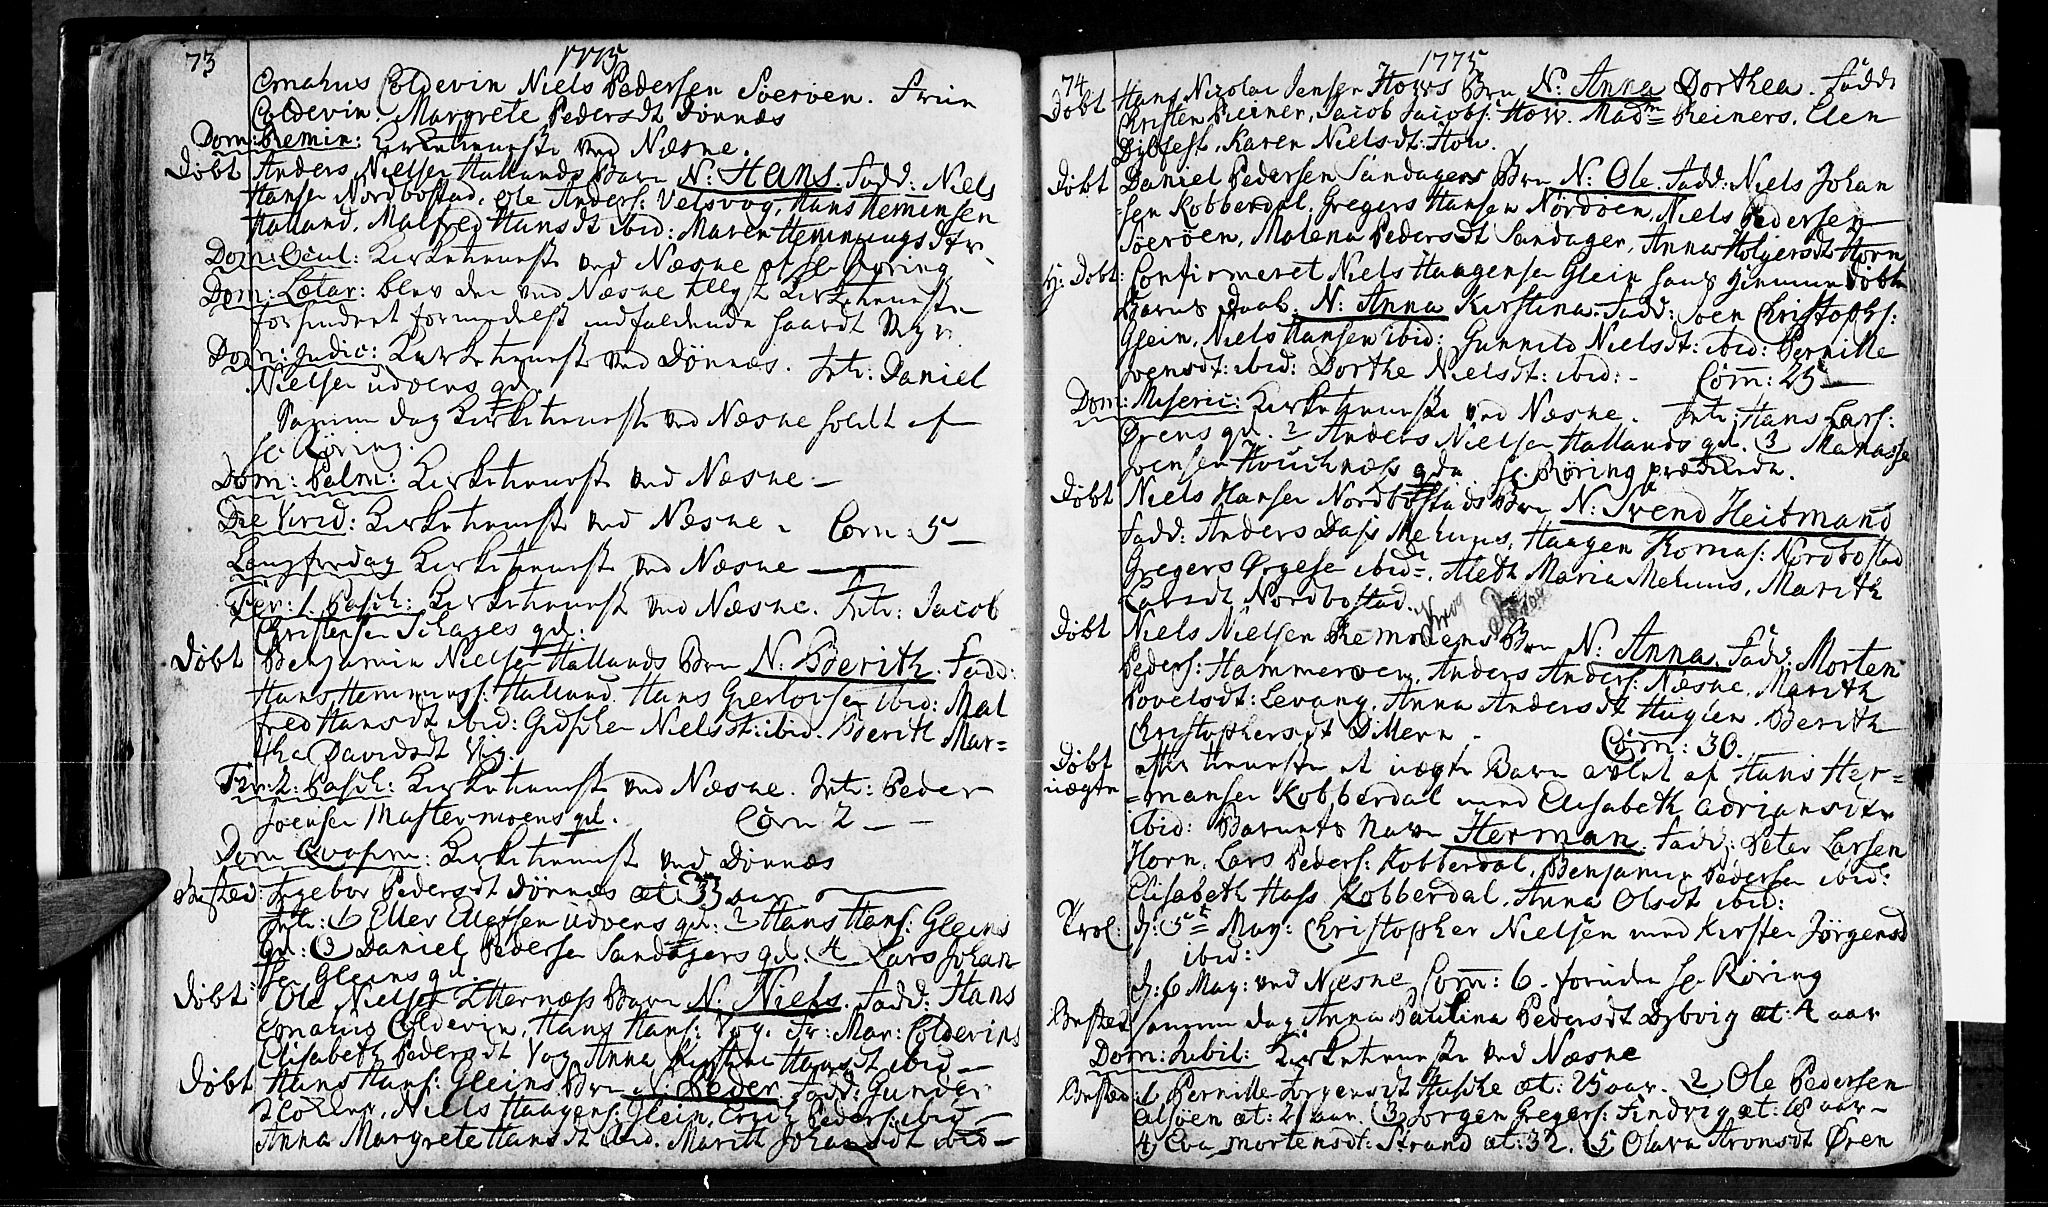 73
1775
Emahus Coldevin Niels Pedersen Soeröen. Frue
Coldevin. Margrete Pedersdt Dönnæs
Dom: Remin: Kirketienneste ved Næsne.
Döbt Anders Nielsen Hallands Barn N: Hans. Fadd: Niels
Hansen Nordbostad, Ole Anders: Velsvog, Hans Hemingsen
Halland, Malfred Hansdt ibid: Maren Hemmingsdtr
Dom: Ocul: Kirketienneste ved Næsne af Hr Röring
Dom: Lætar: blev den ved Næsne tillyste Kirketienneste
forhindret formedelst indfaldende haardt Veyr.
Dom: Judic: Kirketienneste ved Dönnæs. Intr: Daniel
Nielsen Udvens qd.
Samme dag Kirketienneste ved Næsne holdt af
Hr. Röring.
Dom: Palm: Kirketienneste ved Næsne
Die Virid: Kirketienneste ved Næsne. Com: 5
Langfredag Kirketienneste ved Næsne
Fer: 1. Pasch: Kirketienneste ved Næsne. Intr: Jacob
Christensen Schages qd.
Döbt Benjamin Nielsen Hallands Brn N: Berith. Fadd:
Hans Hemmings: Halland. Hans Gierlovsen ibid: Mal
fred Hansdt ibid: Gidschen Nielsdt: ibid. Berith Mar=
tha Davidsdt Vog.
Fer: 2. Pasch: Kirketienneste ved Næsne. Intr: Peder
Joensen Mastermoens qd. Com 2
Dom Qvasim: Kirketienneste ved Dönnæs
Begravet: Ingebor Pedersdt Dönnæs æt 33 aar
Intr: 1 Eller Elefsen Udvens qd: 2 Hans Hans: Gleins
qd: 3 Daniel Pedersen Sandagers qd: 4 Lars Johan
sen Gleins qd.
Döbt Ole Nielsen Etternæss Barn N: Niels. Fadd: Hans
Emahus Coldevin, Hans Hans: Vog. Fr: Mar: Coldevins
Elisabeth Pedersdt Vog Anna Kirstine Hansdt ibid
Döbt Hans Hans: Gleins Brn N: Peder Fadd: Gunder
Niels Haagens: Glein, Erich Peders: ibid
Anna Margrete Hansdt ibid. Marith Johansdt ibid
74
1775
Döbt Hans Nicolai Jensen Hows Brn N: Anna Dorthea. Fadd:
Christen Reiner, Jacob Jacobs: How. Madm Reiners. Elen
Dybfest. Karen Nielsdt: How.
Döbt Daniel Pedersen Sandagers Brn N: Ole. Fadd: Niels Johan
sen Kobberdal. Gregers Hansen Nordöen, Niels Pedersen
Soeröen, Malena Pedersdt Sandager, Anna Holgersdt Horn
Hj: Döbt: Confirmeret Niels Haagensen Glein hans hiemme döbte
Barns Daab. N: Anna Kirstina: Fadd: Joen Christophs:
Glein, Niels Hansen ibid: Gunnild Nielsdt: ibid: Pernille
Joensdt: ibid: Dorthe Nielsdt: ibid: Com: 25
Dom: Miseric: Kirketienneste ved Næsne. Intr: Hans Lars:
Örens qd. 2 Anders Nielsen Hallands qd. 3 Manasse
Joensen Houchnæss qda Hr. Röring prædikede.
Döbt Niels Hansen Nordbostads Brn N: Svend Heitmand
Fadd: Anders Dass Mehuus, Haagen Tomas: Nordbostad
Gregers Örgese ibid, Aleth Maria Mehuus, Marith
Larsdt Nordbostad.
Döbt Niels Nielsen Remmoens Brn N: Anna. Fadd: Morten
Peders: Hammeroen, Anders Anders: Næsne, Marith
Povelsdt: Levang, Anna Andersdt Hugien. Berith
Christophersdt Dillern. Com: 30.
Döbt efter tienneste et uægte Barn avlet af Hans Her=
uægte =mansen Kobberdal med Elisabeth Adriansdtr
ibid: Barnets Navn Herman. Fadd: Peter Larsen
Horn, Lars Peders: Kobberdal, Benjamin Pedersen ibid:
Elisabeth Hass Kobberdal, Anna Olsdt ibid:
Trol: d: 5te May: Christopher Nielsen med Kirsten Jörgensd
ibid:
d: 6 May: ved Næsne Com: 6. foruden Hr Röring
samme dag Anna Paulina Pedersdt Dybvig æt: 4 aar
Dom: Jubil: Kirketienneste ved Næsne
1 Pernille Jorgensdt Husche æt: 25 aar. 2 Ole Pedersen
Alsöen æt: 21 aar 3 Jorgen Gregers: Findvig æt: 18 aar
4 Eva Mortensdt: Strand æt: 32. 5 Olava Aronsdt Ören